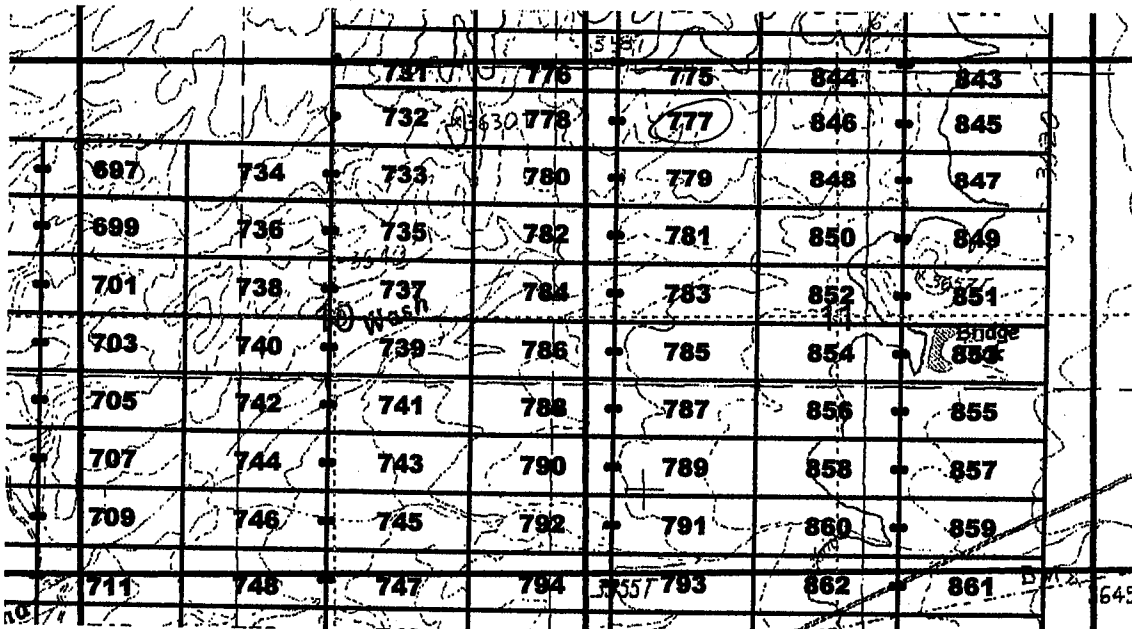 731 776 775 844 843
732 3630 778 777 846 845
697 734 733 780 779 848 847
699 736 735 782 781 850 849
701 738 737 784 783 852 851
Wash
11
Bridge
703 740 739 786 785 854 853
705 742 741 788 787 856 855
707 744 743 790 789 858 857
709 746 745 792 791 860 859
711 748 747 794 3555T 793 862 861
645